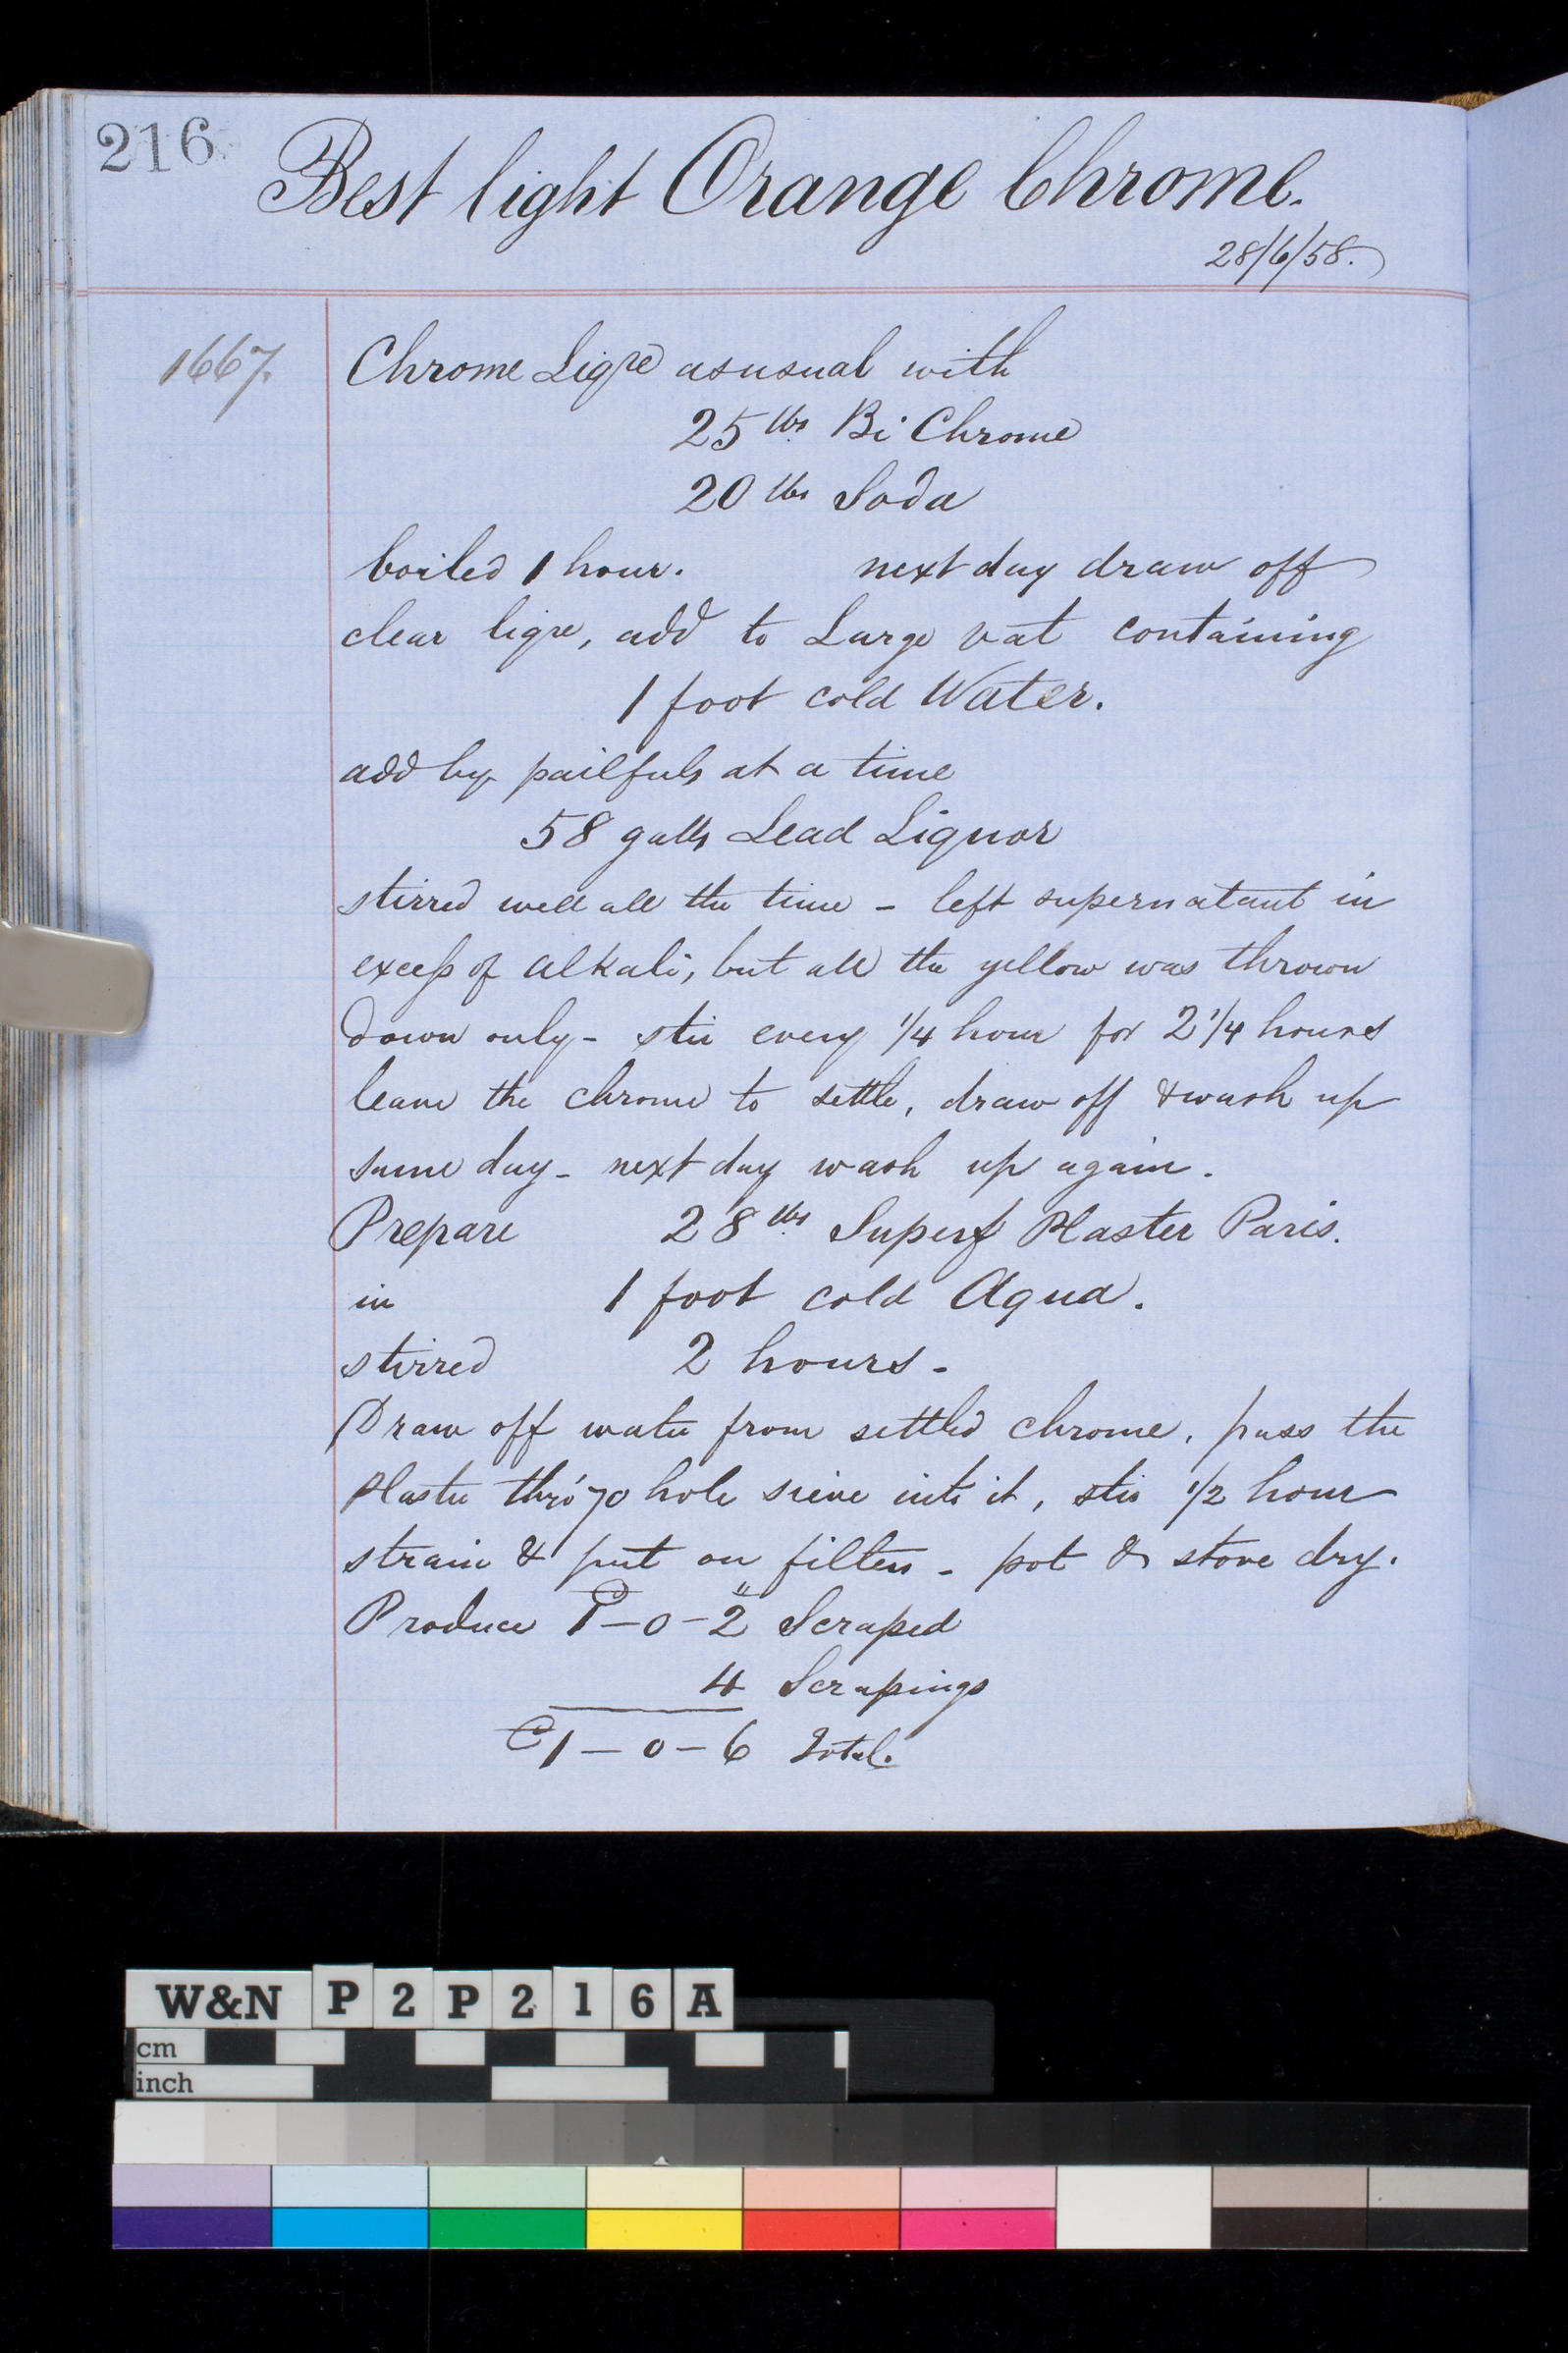 216.
Best light Orange Chrome.
28/6/58.
1667.
Chrome Liqre as usual with
25 lbs Bi Chrome
20 lbs Soda
boiled 1 hour. next day draw off
clear liqre, add to Large vat containing
1 foot cold Water.
add by pailfuls at a time
58 galls Lead Liquor
stirred well all the time - left supernatant in
excess of alkali, but all the yellow was thrown
down only - stir every 1/4 hour for 2 1/4 hours
leave the chrome to settle, draw off & wash up
same day - next day wash up again.
Prepare 28 lbs Superf Plaster Paris.
in 1 foot cold Aqua.
stirred 2 hours -
Draw off water from settled chrome, pass the
Plaster thro' 70 hole sieve into it, stir 1/2 hour
strain & put on filters - pot & stove dry.
Produce C1 - 0 - 2" Scraped
4 Scrapings
C1 - 0 - 6 Total.
W&N P2P216A
cm
inch